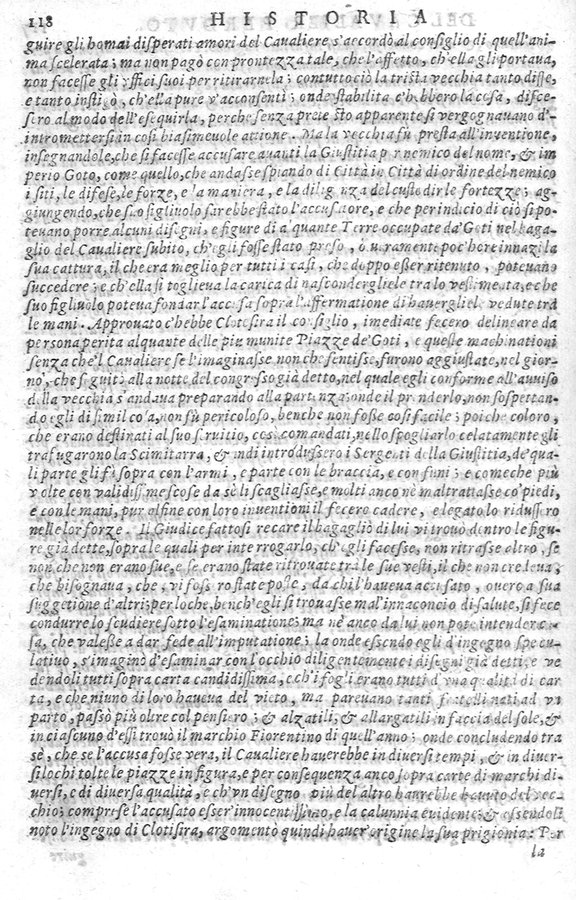 118 HISTORIA
guire gli homai disperati amori del Cavaliere s'accordò al consiglio di quell'ani-
ma scelerata; ma non pagò con prontezza tale, che l'affetto, ch'ella gli portava,
non facesse gli vffici suoi per ritirarnela; contuttociò la trista vecchia tanto disse,
e tanto instigò, ch'ella pure v'acconsentì; onde stabilita c'hebbero la cosa, disce-
sero al modo dell'esequirla, perche senza pretesto apparente si vergognavano d'
intromettersi in così biasimeuole attione. Ma la vecchia fù presta all'inventione,
insegnandole, che si facesse accusare auanti la Giustitia per nemico del nome, & im
perio Goto, come quello, che andasse spiando di Città in Città di ordine del nemico
i siti, le difese, le forze, e la maniera, e la diligenza del custodir le fortezze; ag-
giungendo, che suo figliuolo sarebbe stato l'accusatore, e che per indicio di ciò si po-
teuano porre alcuni disegni, e figure di alquante Terre occupate da' Goti nel baga-
glio del Cavaliere subito, ch'egli fosse stato preso, ò veramente poc'hore innāzi la
sua cattura, il che era meglio per tutti i casi, che doppo esser ritenuto, poteuano
succedere; e ch'ella si toglieua la carica di nascondergliele tra lo vestimenta, e che
suo figliuolo poteva fondar l'accusa sopra l'affermatione di hauergliele vedute tra
le mani. Approuato c'hebbe Clotisira il consiglio, imediate fecero delineare da
persona perita alquante delle più munite Piazze de' Goti, e queste machinationi
senza che'l Cavaliere se l'imaginasse non che sentisse, furono aggiustate, nel gior-
no, che seguitò alla notte del congresso già detto, nel quale egli conforme all'auuiso
della vecchia s'andaua preparando alla partenza: onde il prenderlo, non sospettan-
do egli di simil cosa, non fù pericoloso, benche non fosse così facile; poiche coloro,
che erano destinati al suo seruitio, così comandati, nello spogliarlo celatamente gli
trafugarono la Scimitarra, & indi introdussero i Sergenti della Giustitia, de' qua-
li parte gli fù sopra con l'armi, e parte con le braccia, e con funi; e come che più
volte con validissime scosse da sè li scagliasse, e molti anco nè maltrattasse co' piedi,
e con le mani, pur alfine con loro inventioni il fecero cadere, e legato lo ridussero
nelle lor forze. Il Giudice fattosi recare il bagaglio di lui vi trouò dentro le figu-
re già dette, sopra le quali per interrogarlo, ch'egli facesse, non ritrasse altro, se
non che non erano sue, e se erano state ritrouate tra le sue vesti, il che non credeua,
che bisognaua, che vi fossero state poste, da chi l'haueva accusato, overo a sua
suggetione d'altri; per loche, bench'egli si trouasse mal'inn aconcio di salute, si fece
condurre lo scudiere sotto l'esaminatione; ma nè anco da lui non potè intendere co-
sa, che valesse a dar fede all'imputatione; la onde essendo egli d'ingegno specu-
latiuo, s'imaginò d'esaminar con l'occhio diligentemente i disegni già detti, e ve
dendoli tutti sopra carta candidissima, e ch'i fogli erano tutti d'vna qualità di car
ta, e che niuno di loro haueua del vieto, ma pareuano tanti fratelli nati ad vn
parto, passò più oltre col pensiero; & alzatili, & allargatili in faccia del sole, &
in ciascuno d'essi trouò il marchio Fiorentino di quell'anno; onde concludendo tra
se, che se l'accusa fosse vera, il Cavaliere hauerebbe in diversi tempi, & in diver-
si lochi tolte le piazze in figura, e per consequenza anco sopra carte di marchi di-
uersi, e di diversa qualità, e ch'vn disegno più del altro haurebbe hauuto del vec-
chio; comprese l'accusato esser innocentissimo, e la calunnia euidente; & essendoli
noto l'ingegno di Clotisira, argomentò quindi hauer origine la sua prigionia: Per
la